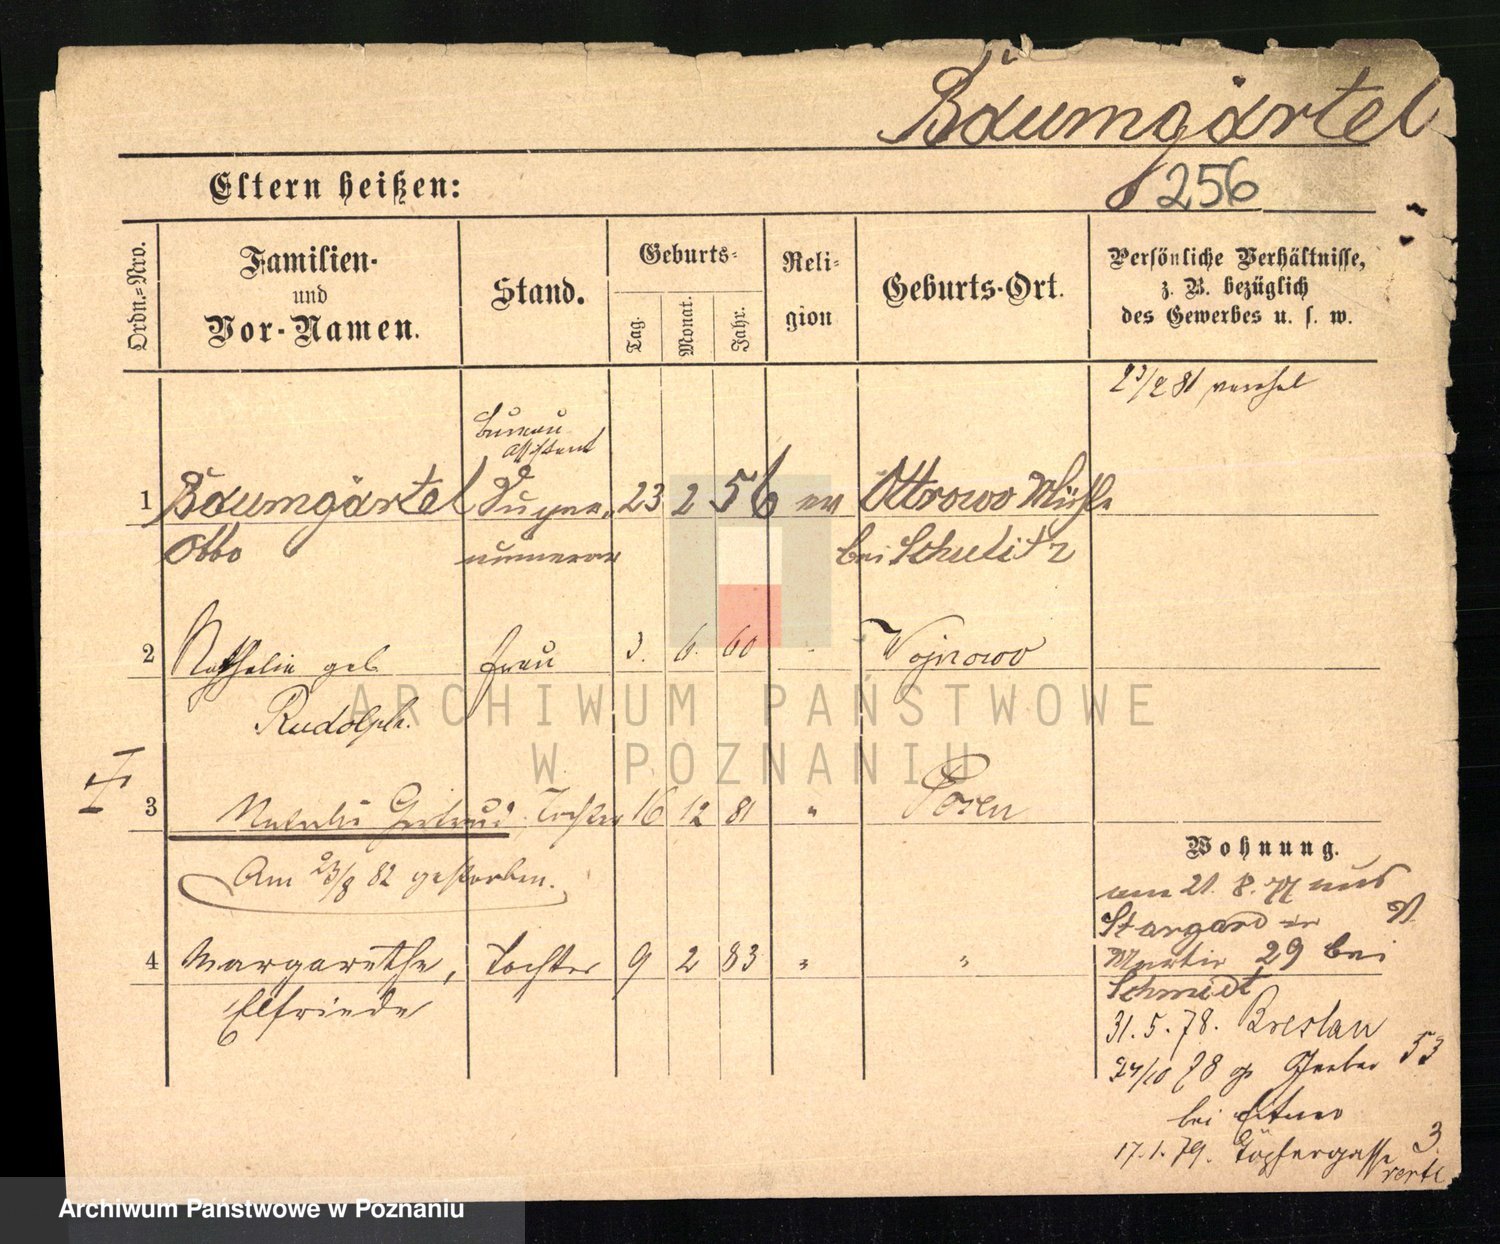 Baumgärtel
256
Eltern heißen:
Ordn.-Nro.
Familien- und Vor-Namen.
Stand.
Geburts-
Tag.
Monat.
Jahr.
Religion
Geburts-Ort.
Persönliche Verhältnisse,
z. B. bezüglich
des Gewerbes u. s. w.
23/2 81
Bureau
Assistent
1 Baumgärtel Super- 23 2 56 ev Ottrowo Mühle
Otto numerar bei Schulitz
2 Nathalie geb. Frau 3. 6. 60 Wojnowo
Rudolph.
3 Natalie Gertrud Tochter 16 12 81 " Posen
Am 23/8 82 gestorben.
Wohnung.
am 21. 8. 77 aus
Stargard
4 Margarethe, Tochter 9 2 83 " "
Elfriede
Martin 29 bei
Schmidt
31. 5. 78. Breslau
24/10 78 Gerber 53
bei
17. 1. 79. Töpfergasse 3
ARCHIWUM PAŃSTWOWE
W POZNANIU
Archiwum Państwowe w Poznaniu